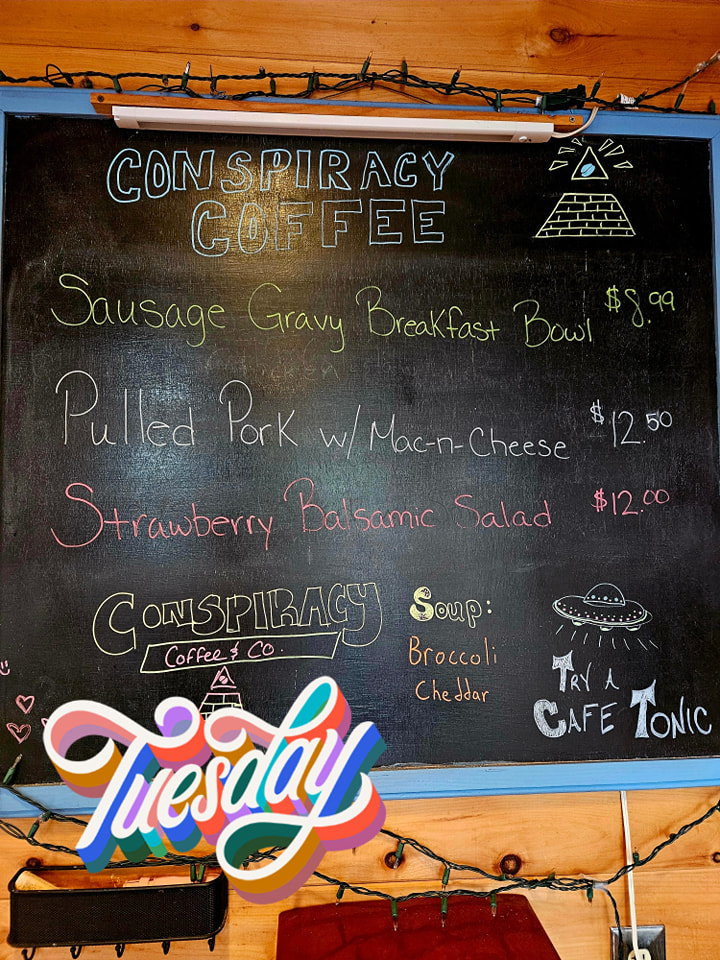 CONSPIRACY
COFFEE
Sausage Gravy Breakfast Bowl $8.99
Pulled Pork w/ Mac-n-Cheese $12.50
Strawberry Balsamic Salad $12.00
CONSPIRACY
Coffee & Co.
Soup:
Broccoli
Cheddar
TRY A
CAFE TONIC
Tuesday